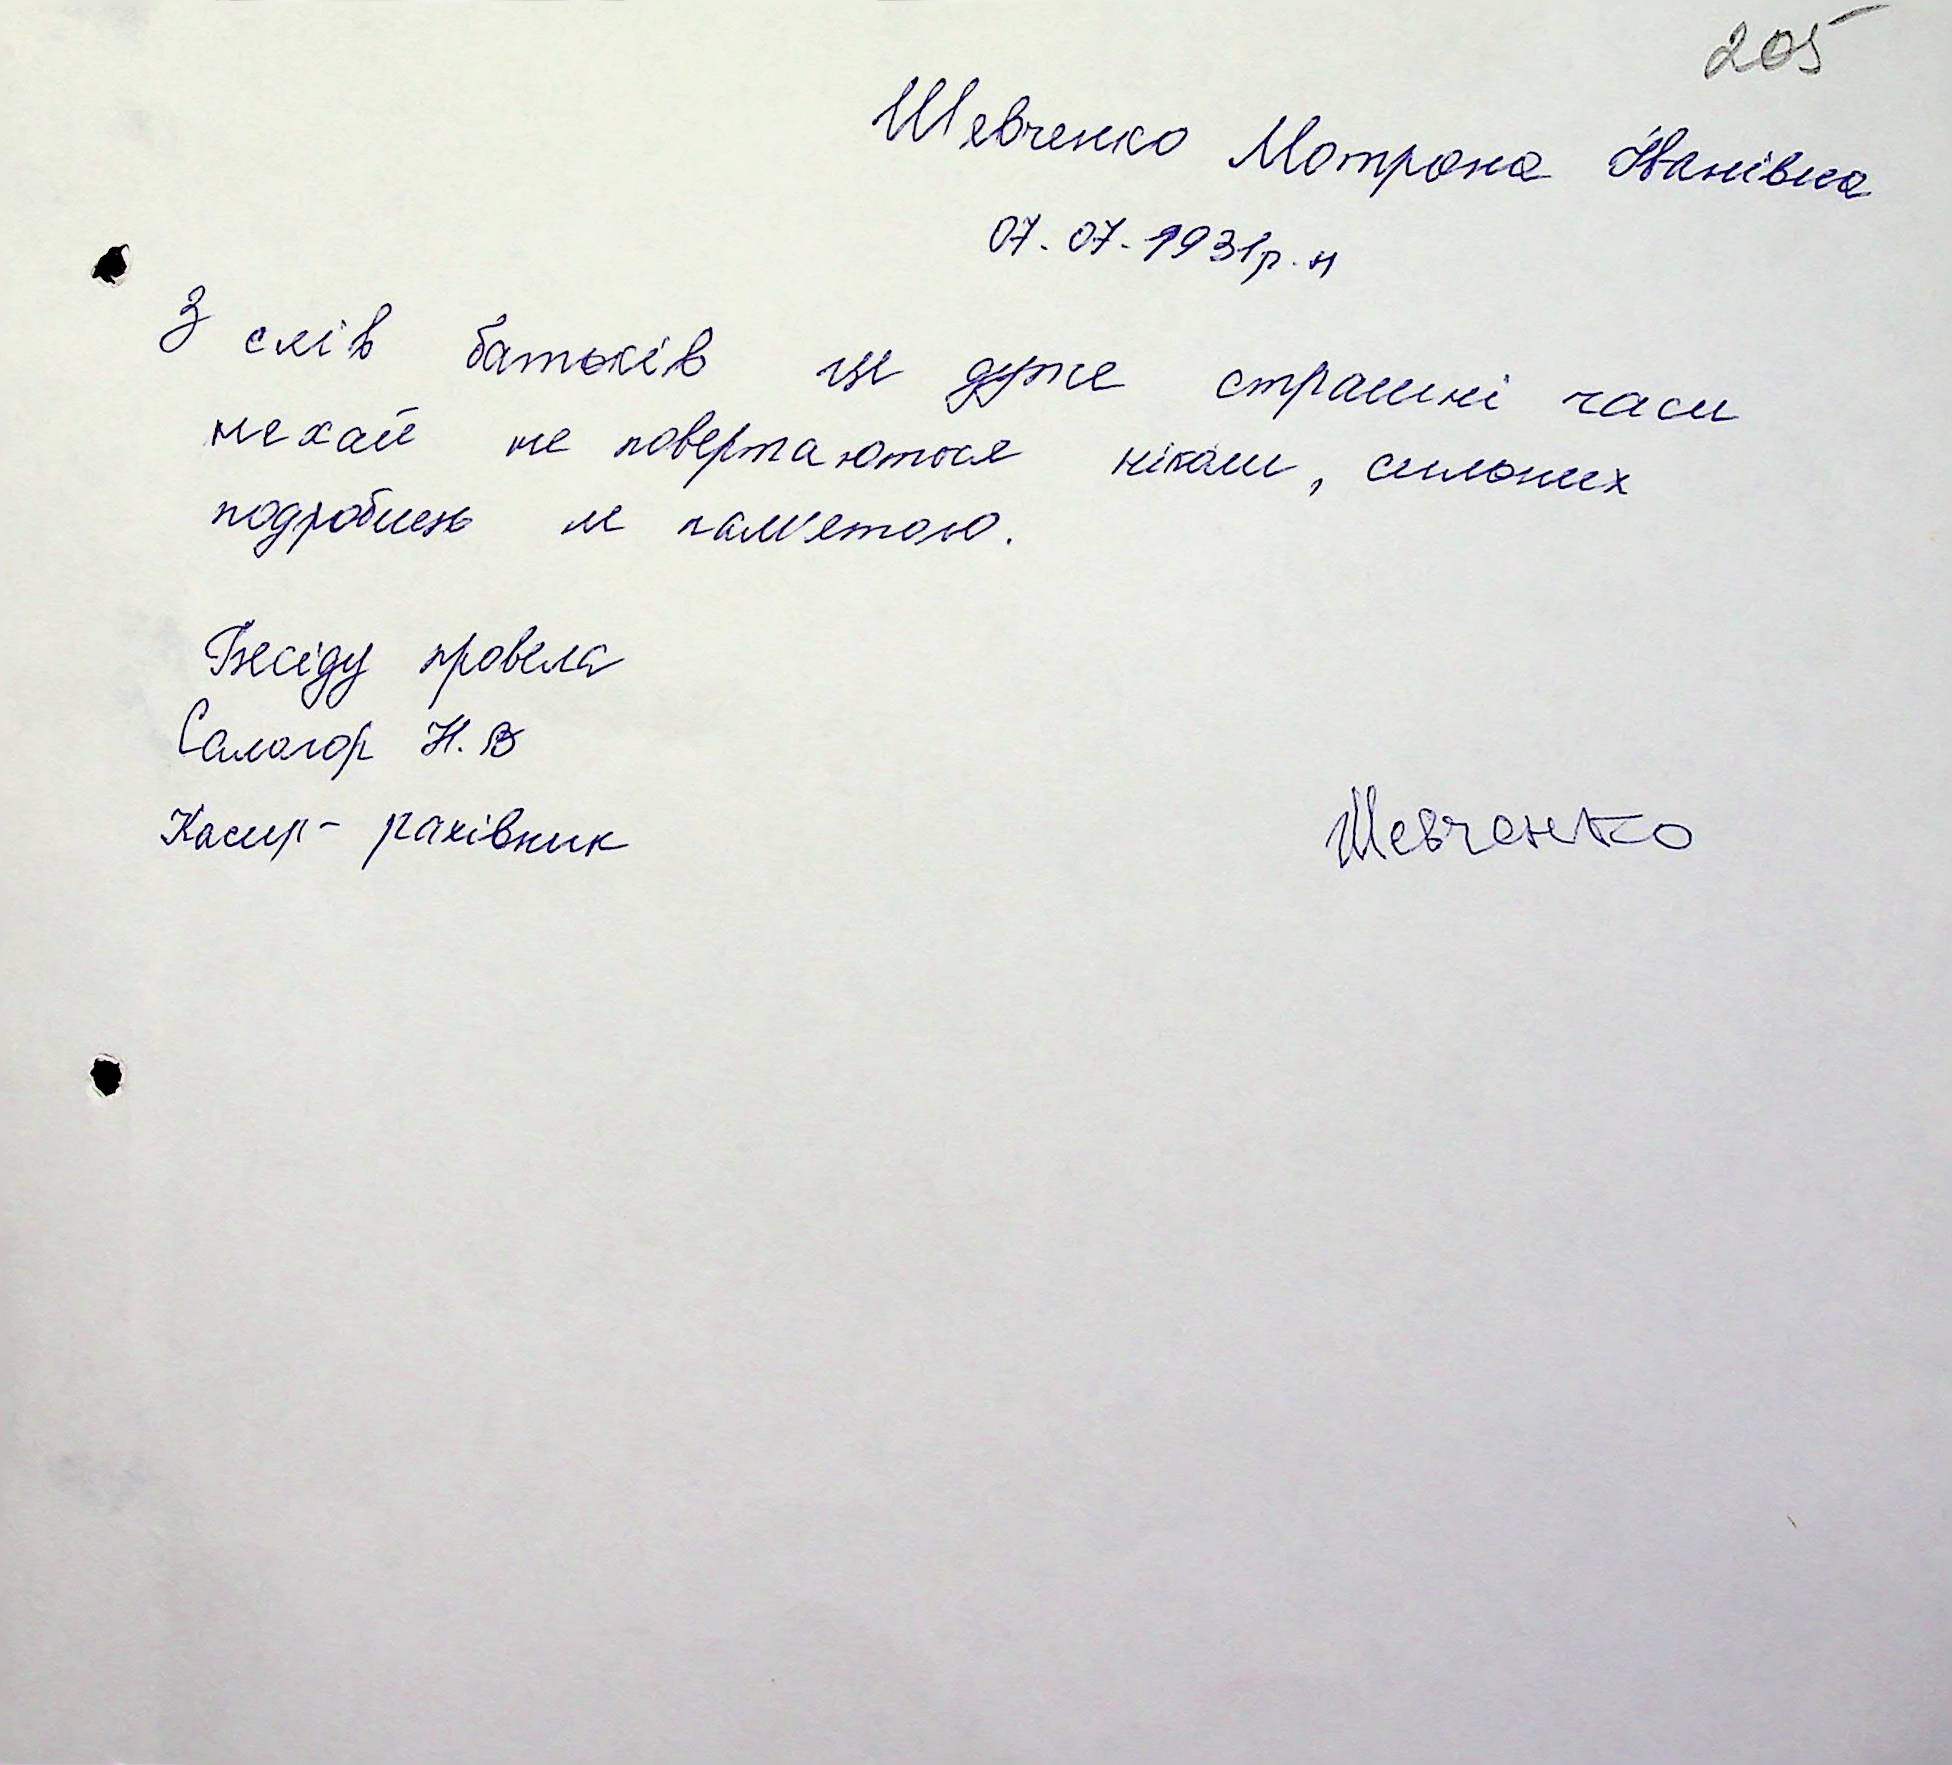 205
Шевченко Мотрона Іванівна
07.07.1931р.н
З слів батьків це дуже страшні часи
нехай не повертаються ніколи, сильних
подробиць не пам'ятаю.
Бесіду провела
Салогор Н.В
Касир- рахівник
Шевченко